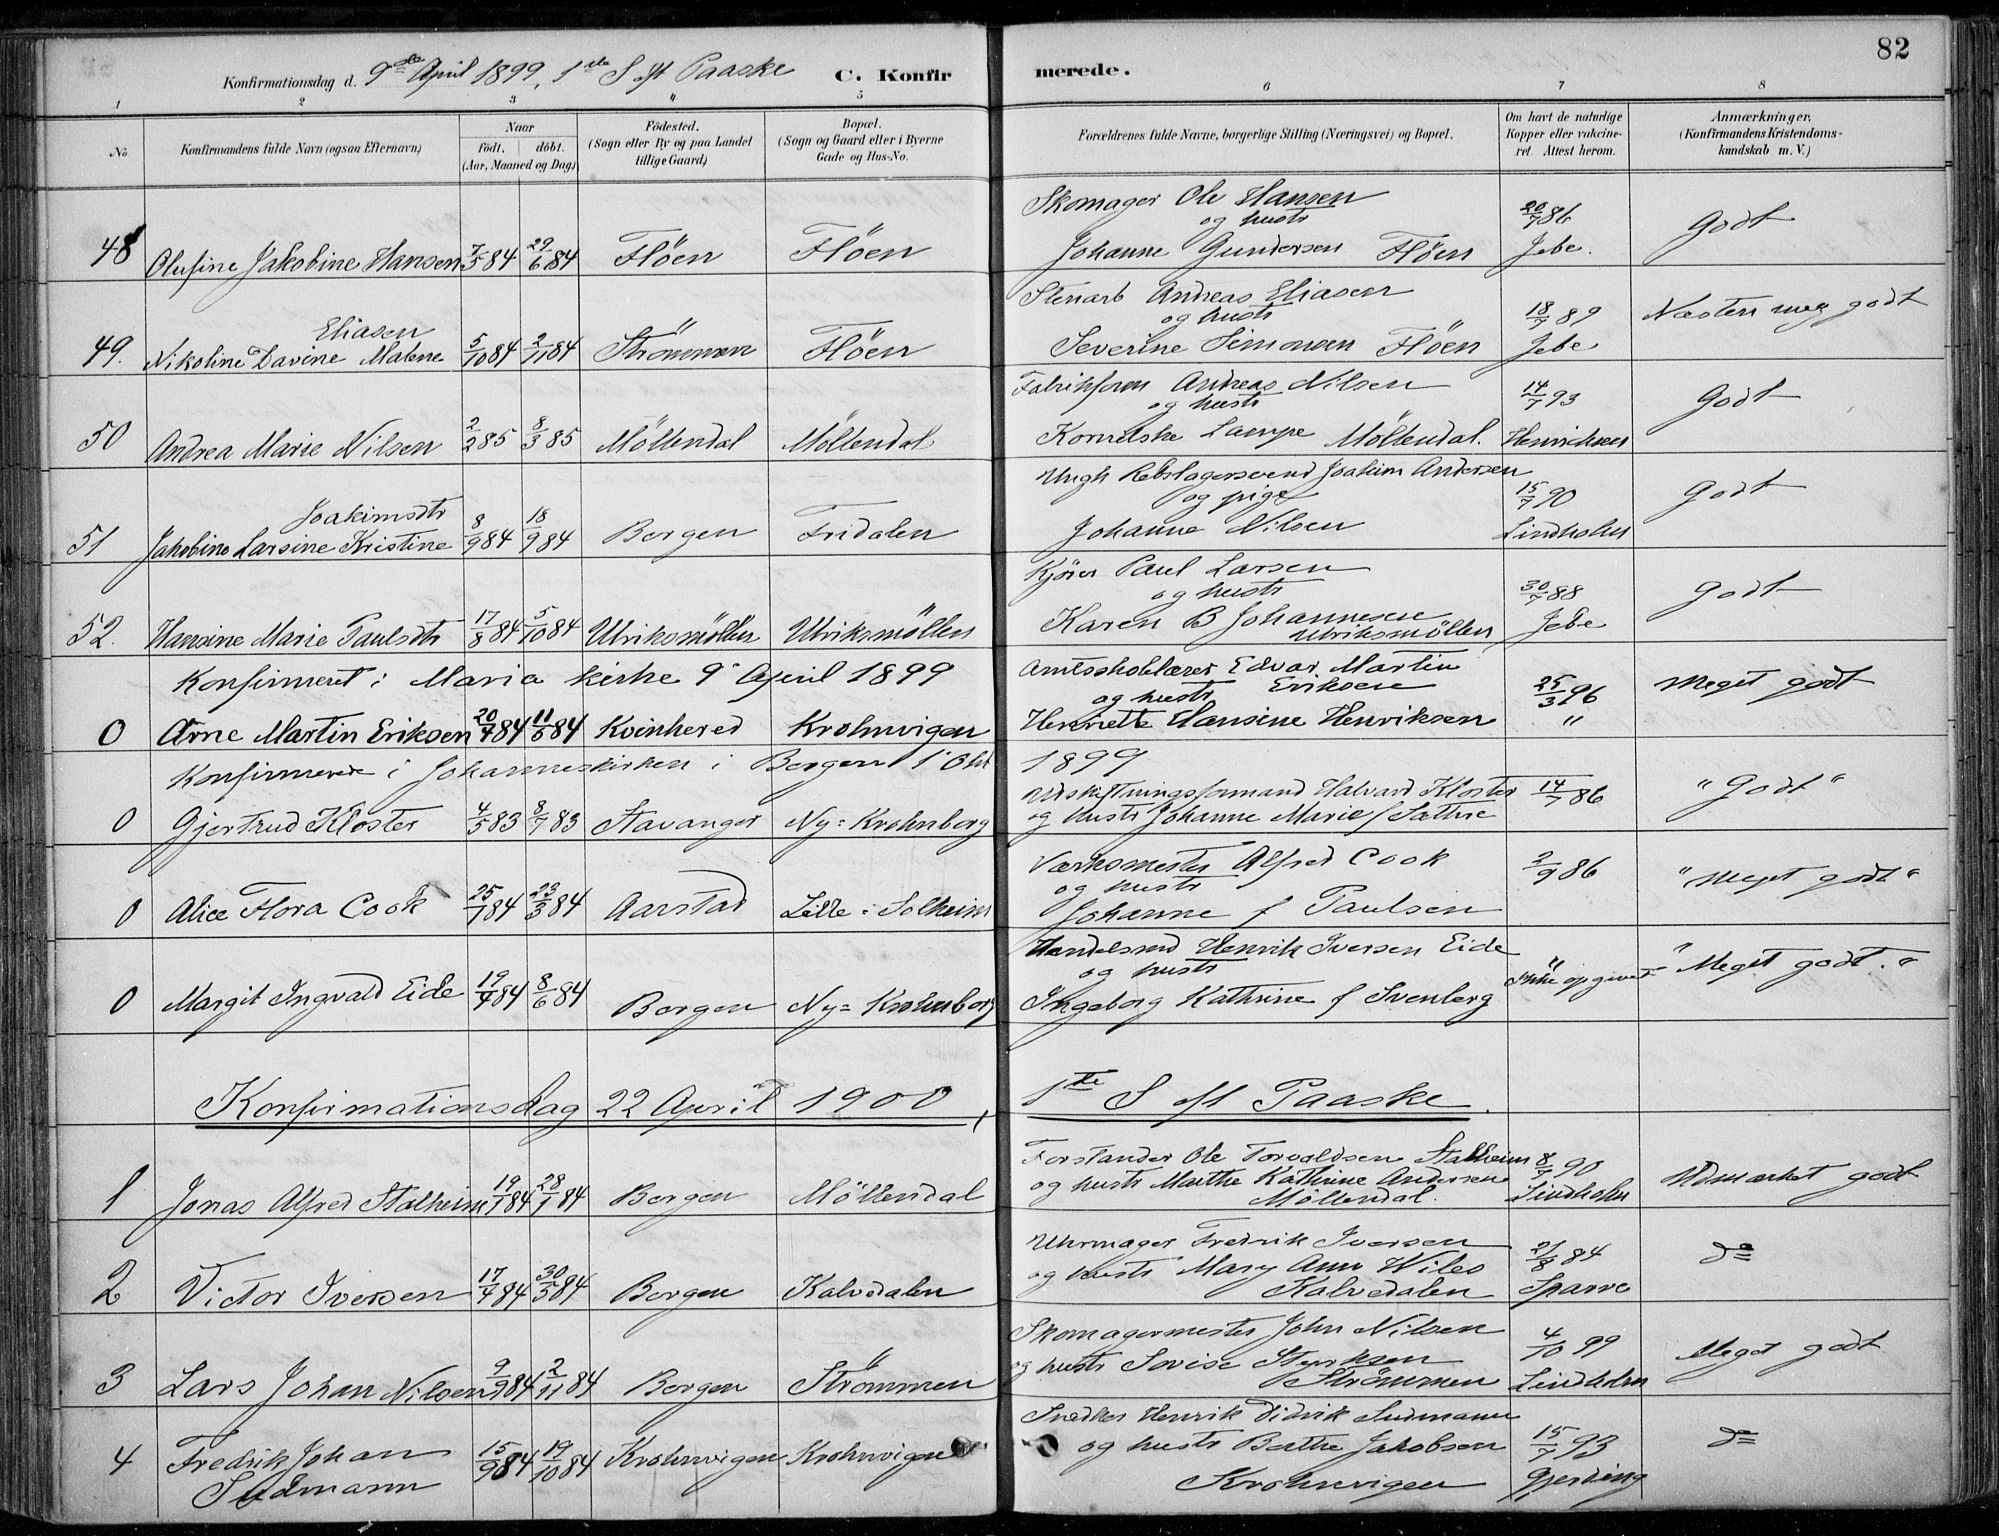 82
Konfirmationsdag d. 9de April 1899, 1ste S eft Paaske C. Konfirmerede.
1 2 3 4 5 6 7 8
No. Konfirmandens fulde Navn (ogsaa Efternavn) Naar født. døbt. (Aar, Maaned og Dag) Födested. (Sogn eller By og paa Landet tillige Gaard) Bopæl. (Sogn og Gaard eller i Byerne Gade og Hus-No. Forældrenes fulde Navne, borgerlige Stilling (Næringsvei) og Bopæl. Om havt de naturlige Kopper eller vakcineret. Attest herom. Anmærkninger, (Konfirmandens Kristendomskundskab m. V.)
Skomager Ole Hansen
og hustr 20/7 86 Godt
48 Olufine Jakobine Hansen 7/5 84 29/6 84 Flöen Flöen Johanne Gundersen Flöen Jebe.
Stenarb Andreas Eliasen
Eliasen og hustr 18/7 89 Næsten meg godt
49. Nikoline Davine Malene 5/10 84 2/11 84 Strömmen Flöen Severine Simonsen Flöen Jebe
Fabrikform Andreas Nilsen 14/7 93
og hustr Godt
50 Andrea Marie Nilsen 2/2 85 8/3 85 Möllendal Möllendal Kornelske Lampe Möllendal. Henrichsen
Ungk Rebslagersvend Joakim Andersen
Joakimsdtr og pige 15/7 90 Godt
51 Jakobine Larsine Kristine 8/9 84 18/9 84 Bergen Fridalen Johanne Nilsen Lindholm
Kjörer Paul Larsen
og hustr 30/7 88 Godt
52. Hansine Marie Paulsdtr 17/8 84 5/10 84 Ulriksmöllen Ulriksmöllen Karen B Johannesen Ulriksmöllen Jebe
Konfirmeret i Maria kirke 9 April 1899 Amtsskolelærer Edvar Martin
og hustr Eriksen 25/3 96 Meget godt
0 Arne Martin Eriksen 20/4 84 11/5 84 Kvinhered Krohnvigen Henriette Hansine Henriksen "
Konfirmerede i Johanneskirken i Bergen 1 Okt 1899
Udskiftningsformand Halvard Kloster 14/7 86 "Godt"
0 Gjertrud Kloster 4/5 83 8/7 83 Stavanger Ny=Krohnborg og hustr Johanne Marie f Sæthre
Værksmester Alfred Cook 2/9 86
og hustr "Meget godt"
0 Alice Flora Cook 25/1 84 23/3 84 Aarstad Lille=Solheim Johanne f Paulsen
Handelsmd Henrik Iversen Eide
og hustr Ikke opgivet "Meget godt."
0 Margit Ingvald Eide 19/4 84 8/6 84 Bergen Ny=Krohnborg Ingeborg Kathrine f Svenberg
Konfirmationsdag 22 April 1900, 1ste S eft Paaske.
Forstander Ole Torvaldsen Stalheim 8/7 90
1 Jonas Alfred Stalheim 19/7 84 28/9 84 Bergen Möllendal og hustr Marthe Kathrine Andersen Lindholm Udmærket godt
Möllendal.
Uhrmager Fredrik Iversen 21/8 84 do
2 Victor Iversen 17/4 84 30/5 84 Bergen Kalvedalen og hustr Mary Ann Wiles
Kalvedalen Sparre
Skomagermester John Nilsen 4/10 99
3 Lars Johan Nilsen 9/9 84 2/11 84 Bergen Strömmen og hustr Lovise Styrksen Meget godt
Strömmen Lindholm
Snedker Henrik Didrik Sudmann
4 Fredrik Johan 15/9 84 19/10 84 Krohnvigen Krohnvigen og hustr Berthe Jakobsen 15/7 93 do
Sudmann Krohnvigen Gjerding